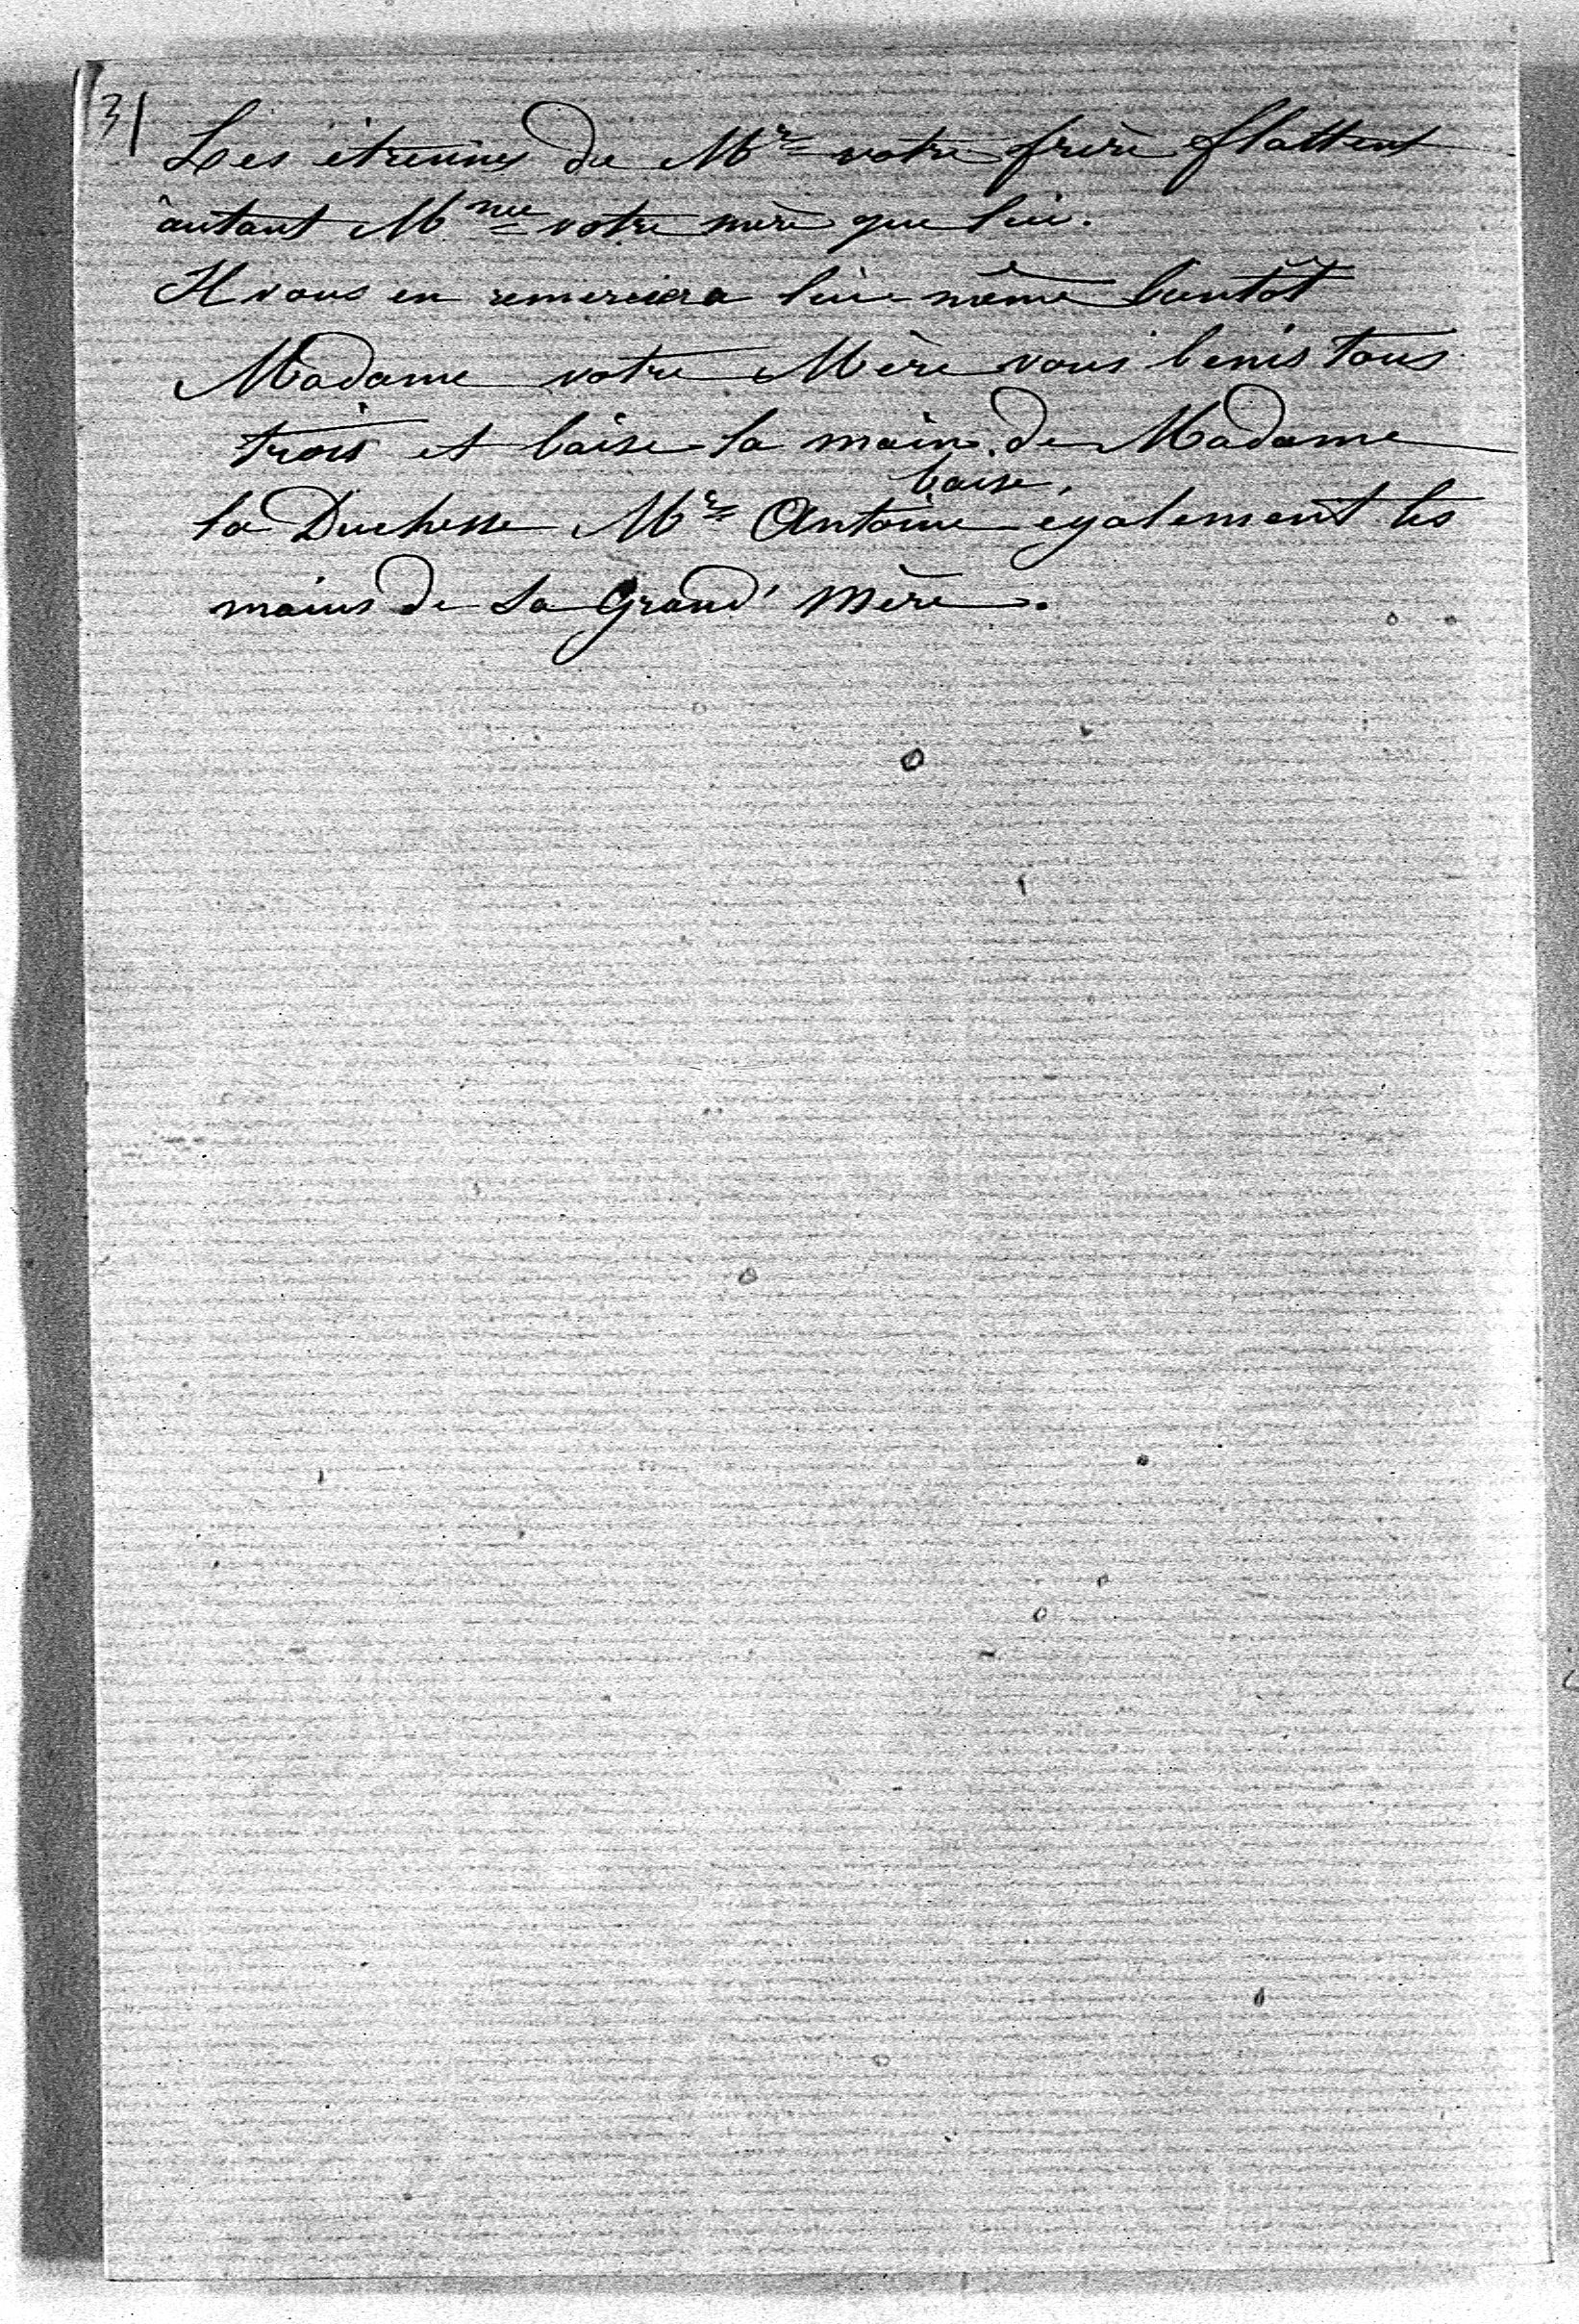 3/
Les étrennes de Mr votre frère flattent
autant Mme votre mère que lui.
Il vous en remerciera lui même bientôt
Madame votre Mère vous benis tous
trois et baise la main de Madame
baise,
la Duchesse Mr Antoine egalement les
mains de sa Grand' Mère.